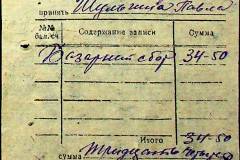 принять Шульгина Павла
№№ бил./сч Содержание записи Сумма
Базарний сбор 34-50
Итого 34-50
сумма Тридцать